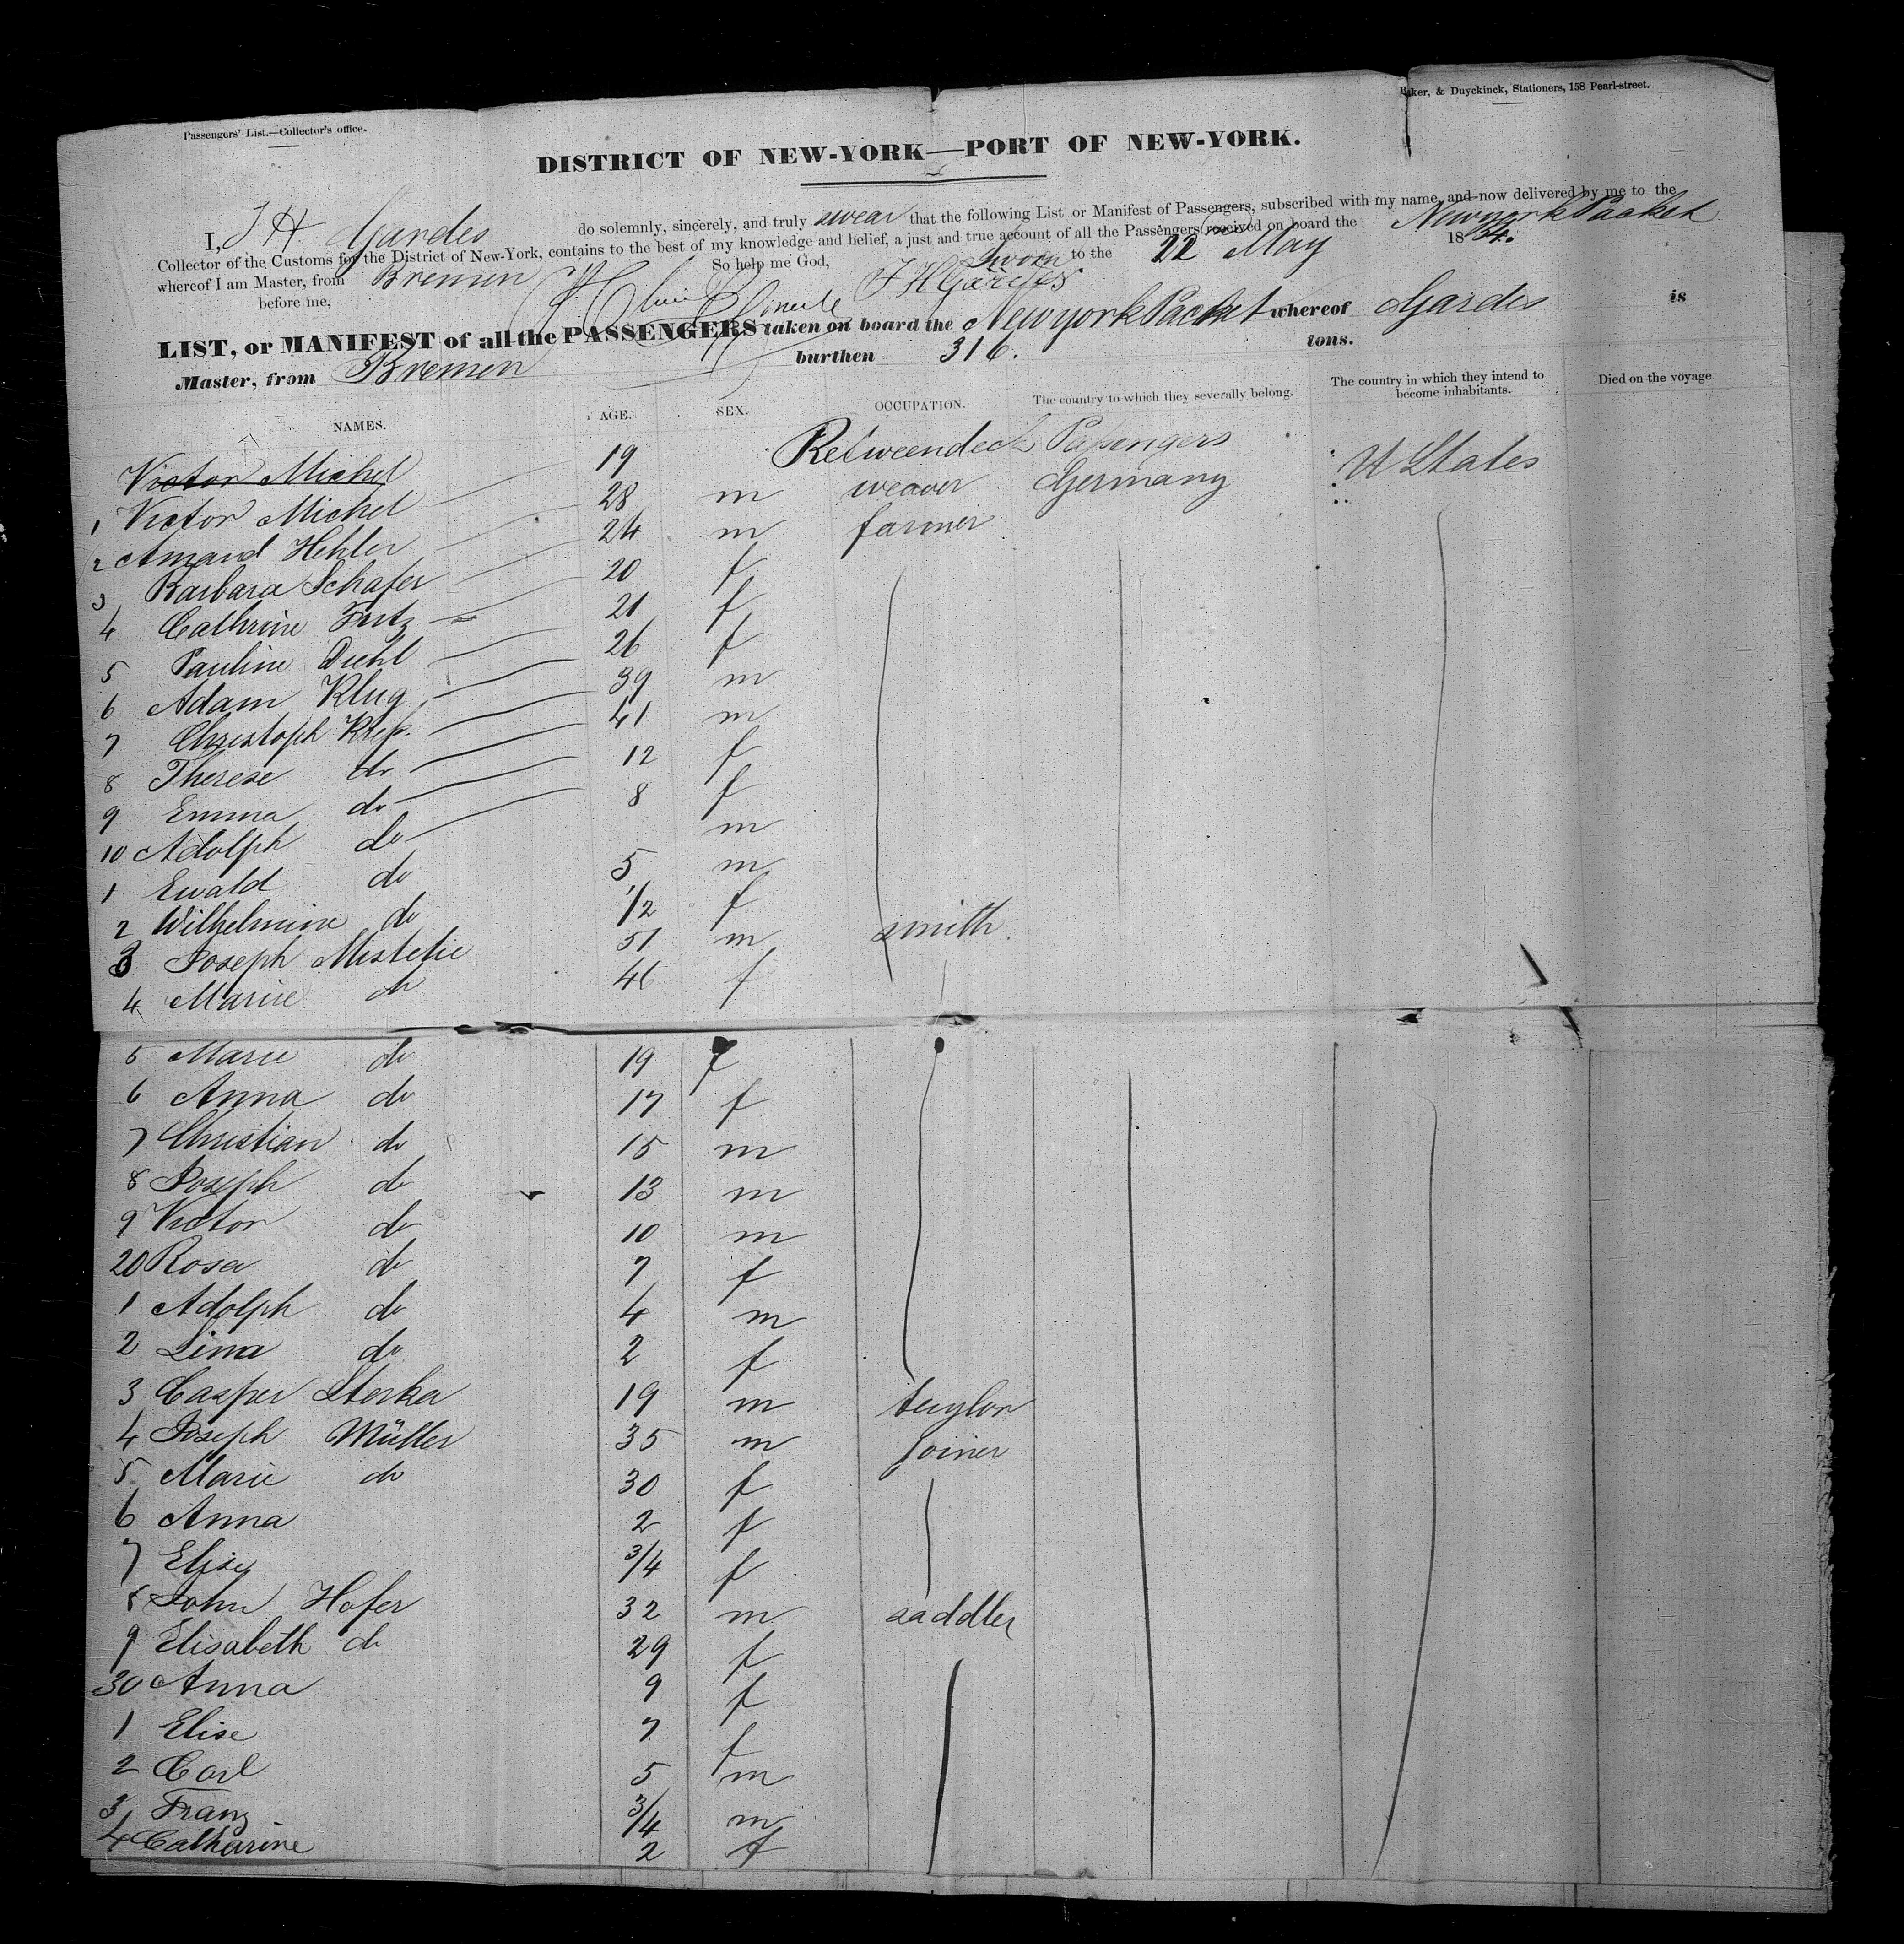 Passengers' List.—Collector's office.
Baker, & Duyckinck, Stationers, 158 Pearl-street.
DISTRICT OF NEW-YORK—PORT OF NEW-YORK.
I, J H. Gardes do solemnly, sincerely, and truly swear that the following List or Manifest of Passengers, subscribed with my name, and now delivered by me to the
Collector of the Customs for the District of New-York, contains to the best of my knowledge and belief, a just and true account of all the Passengers received on board the Newyork Packet
whereof I am Master, from Bremen So help me God, Sworn to the 22 May 1854.
before me, J H Gardes
LIST, or MANIFEST of all the PASSENGERS taken on board the Newyork Packet whereof Gardes is
Master, from Bremen burthen 316. tons.
NAMES. AGE. SEX. OCCUPATION. The country to which they severally belong. The country in which they intend to become inhabitants. Died on the voyage
Victor Michel Betweendeck Passengers
1 Victor Michel 19 m weaver Germany U States
2 Amand Hehler 28 m farmer
3 Barbara Schafer 24 f
4 Cathrine Fritz 20 f
5 Pauline Diehl 21 f
6 Adam Klug 26 m
7 Christoph 39 m
8 Therese do 41 f
9 Emma do 12 f
10 Adolph do 8 m
1 Ewald do 5 m
2 Wilhelmine do 1/2 f
3 Joseph 51 m smith.
4 Marie do 46 f
5 Marie do 19 f
6 Anna do 17 f
7 Christian do 15 m
8 Joseph do 13 m
9 Victor do 10 m
20 Rosa do 7 f
1 Adolph do 4 m
2 Lina do 2 f
3 Casper Sterker 19 m taylor
4 Joseph Müller 35 m joiner
5 Marie do 30 f
6 Anna 2 f
7 Elise 3/4 f
8 John Hofer 32 m saddler
9 Elisabeth do 29 f
30 Anna 9 f
1 Elise 7 f
2 Carl 5 m
3 Franz 3/4 m
4 Catharine 2 f